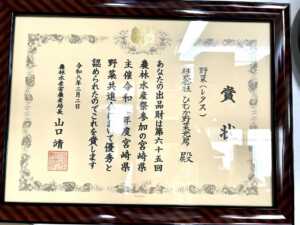 賞状
野菜(レタス)
ひむか野菜光房 殿
あなたの出品財は第六十五回
農林水産祭参加の宮崎県
主催令和 年度宮崎県
野菜共進 優秀と
認められたのでこれを賞します
令和 年二月二日
農林水産省農産局長 山口 靖